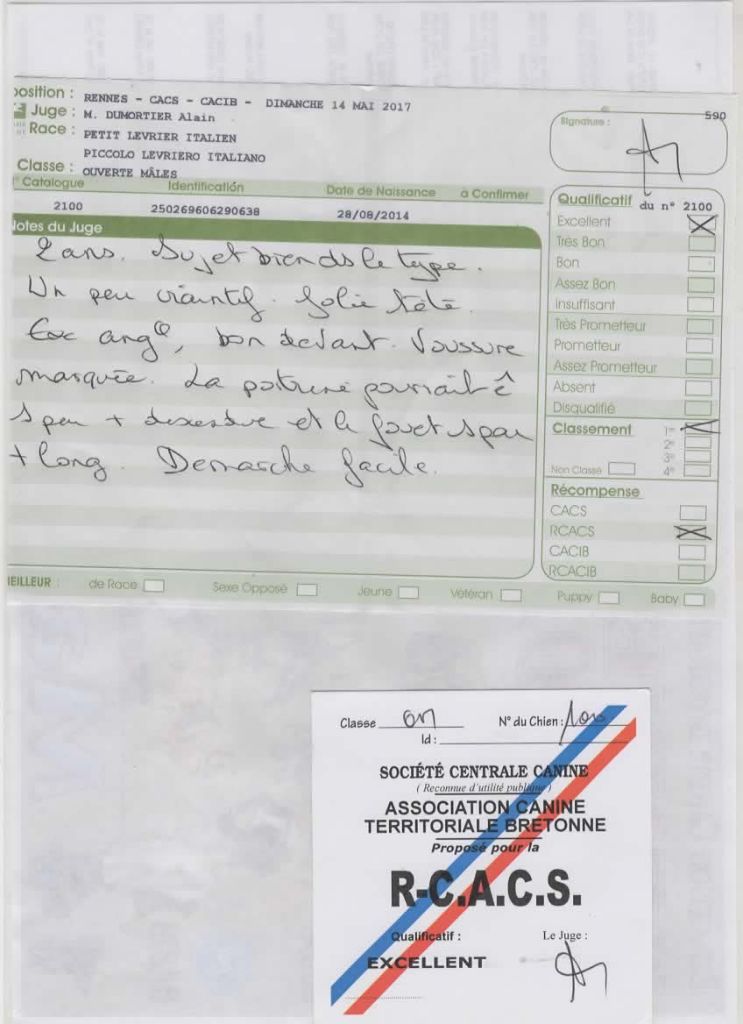 position : RENNES - CACS - CACIB - DIMANCHE 14 MAI 2017
590
Juge : M. DUMORTIER Alain
Signature :
Race : PETIT LEVRIER ITALIEN
PICCOLO LEVRIERO ITALIANO
Classe : OUVERTE MÂLES
Catalogue Identification Date de Naissance à Confirmer
2100 250269606290638 28/08/2014
Notes du Juge
2 ans. Sujet bien ds le type.
Un peu craintif. Jolie tête.
Exc ang°, bon devant. Voussure
marquée. La poitrine pourrait ê
1 peu + descendue et le fouet 1 peu
+ long. Démarche facile.
Qualificatif du n° 2100
Excellent
Très Bon
Bon
Assez Bon
Insuffisant
Très Prometteur
Prometteur
Assez Prometteur
Absent
Disqualifié
Classement 1er
2e
3e
Non Classé 4e
Récompense
CACS
RCACS
CACIB
RCACIB
MEILLEUR : de Race Sexe Opposé Jeune Vétéran Puppy Baby
Classe N° du Chien :
Id :
SOCIÉTÉ CENTRALE CANINE
( Reconnue d'utilité publique )
ASSOCIATION CANINE
TERRITORIALE BRETONNE
Proposé pour la
R-C.A.C.S.
Qualificatif : Le Juge :
EXCELLENT